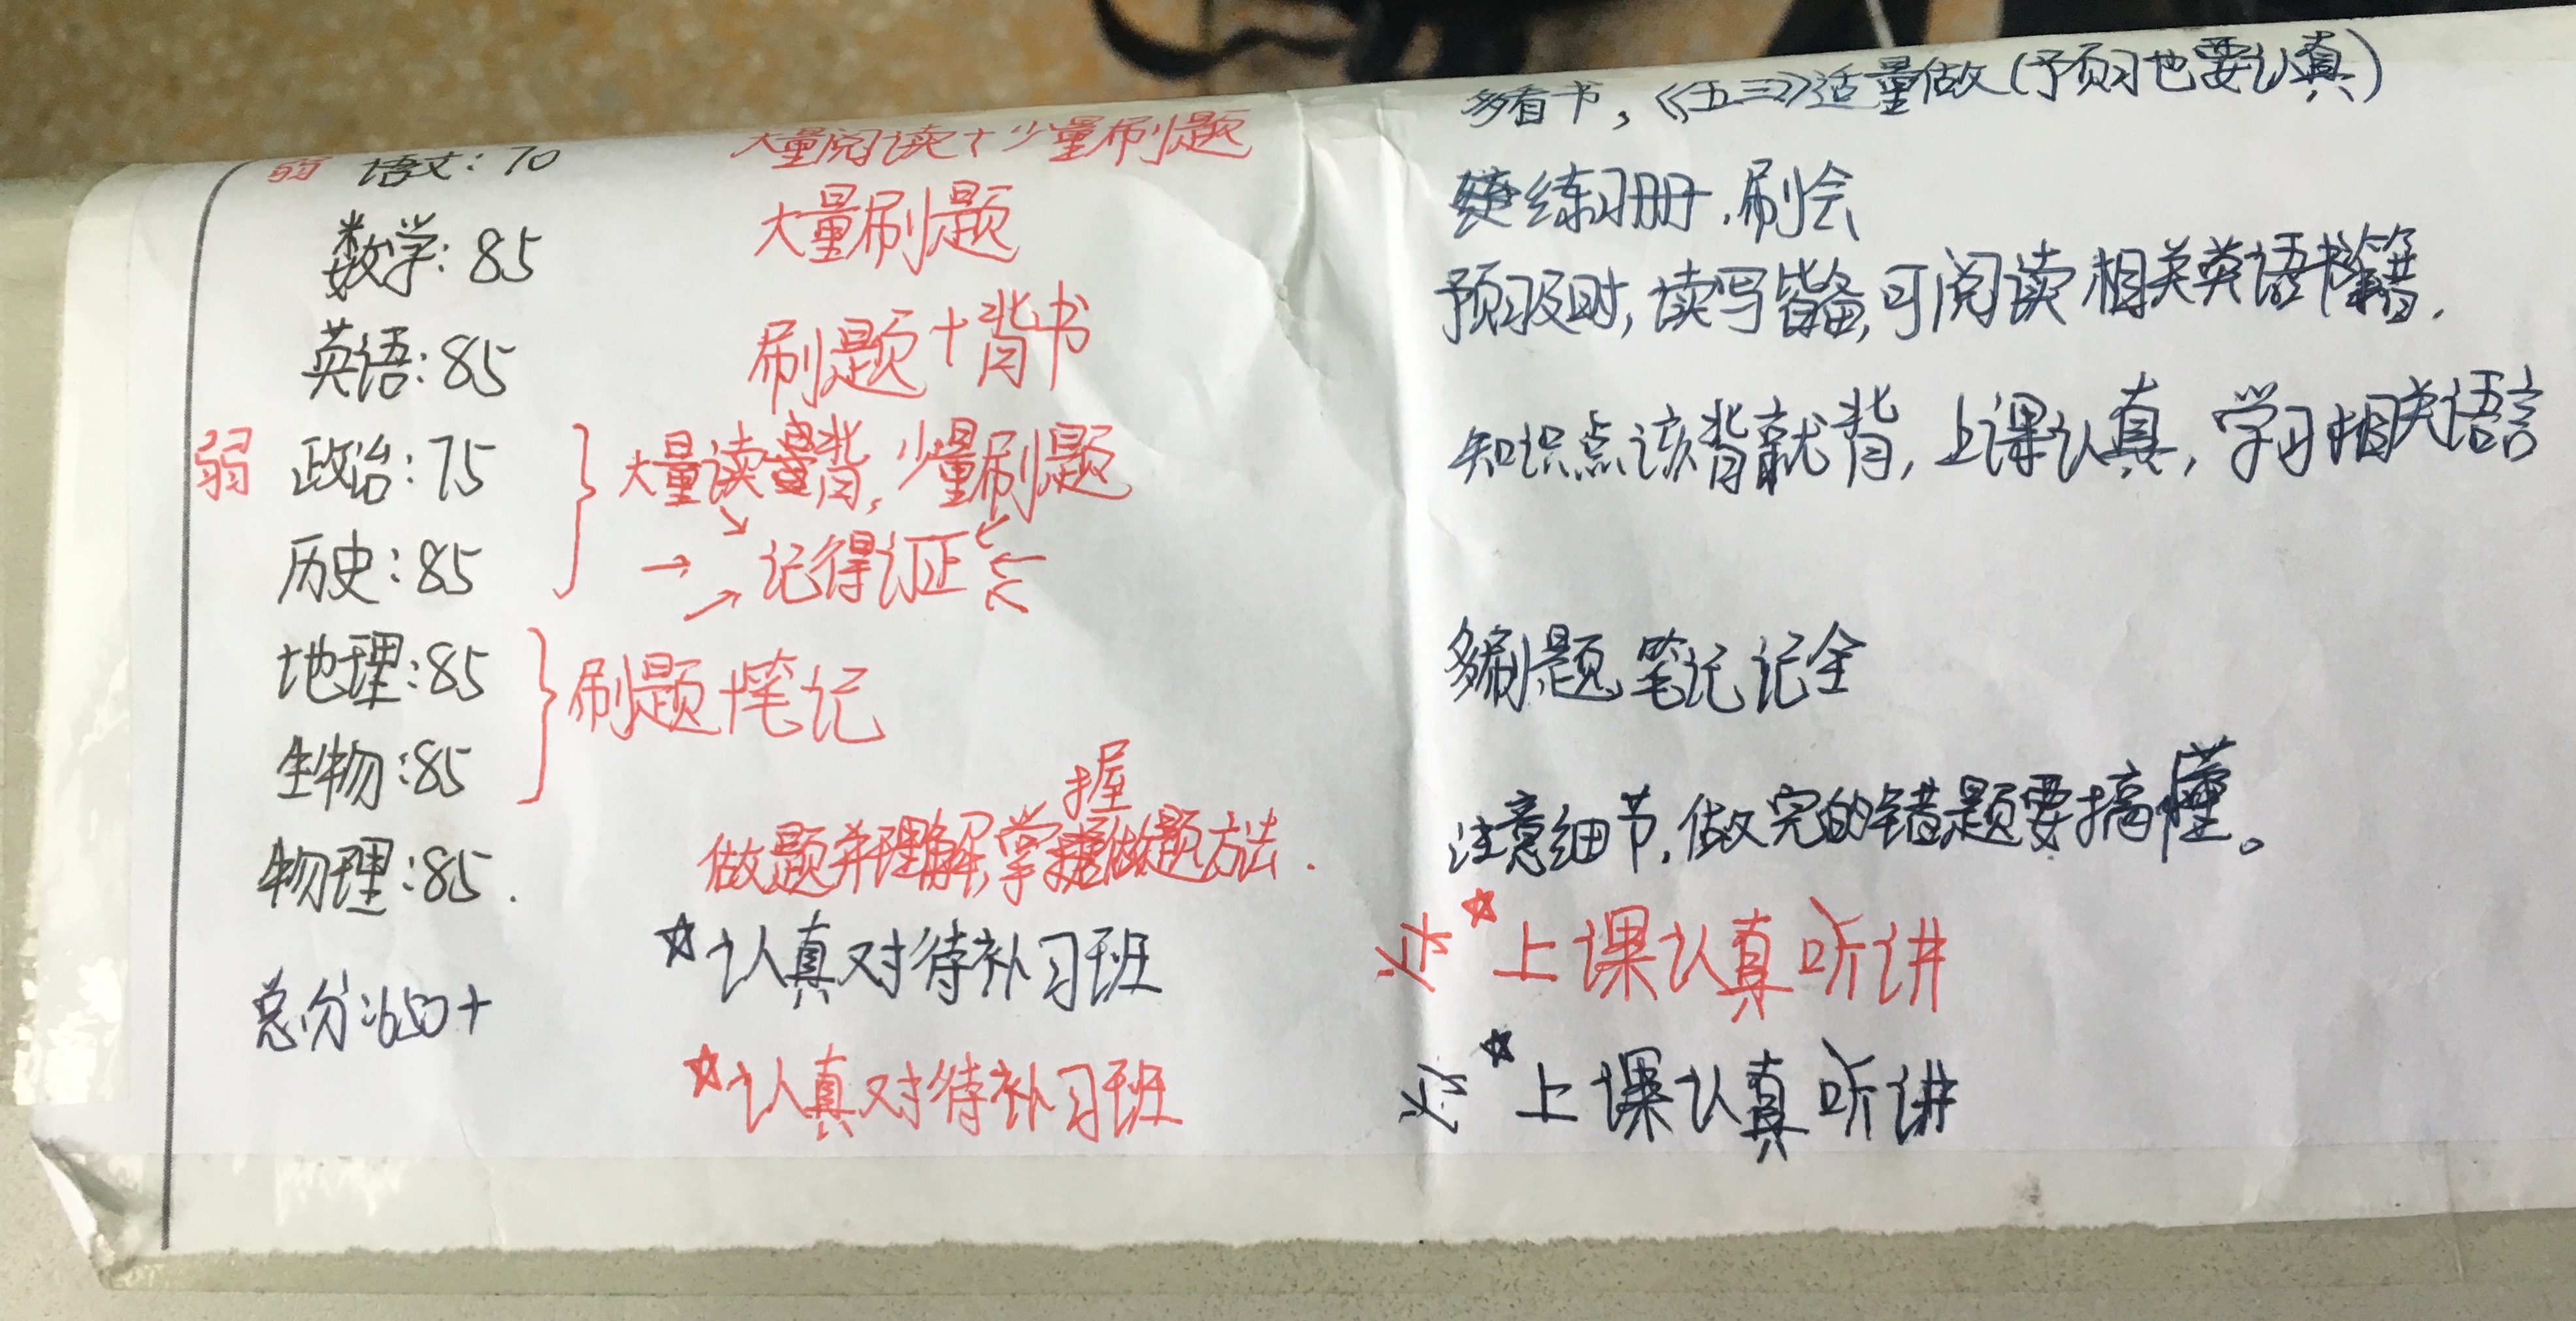 弱 语文：70 大量阅读+少量刷题 多看书，《五三》适量做(预习也要认真)
数学：85 大量刷题 练习册，刷会
英语：85 刷题+背书 预习及时，读写皆备，可阅读相关英语书籍．
弱 政治：75 大量读背，少量刷题 知识点该背就背，上课认真，学习相关语言
历史：85 →记得订正←
地理：85 刷题+笔记 多刷题 笔记记全
生物：85
物理：85． 做题并理解，掌握做题方法． 注意细节，做完的错题要搞懂。
☆认真对待补习班 ☆上课认真听讲
总分：650+
☆认真对待补习班 ☆上课认真听讲